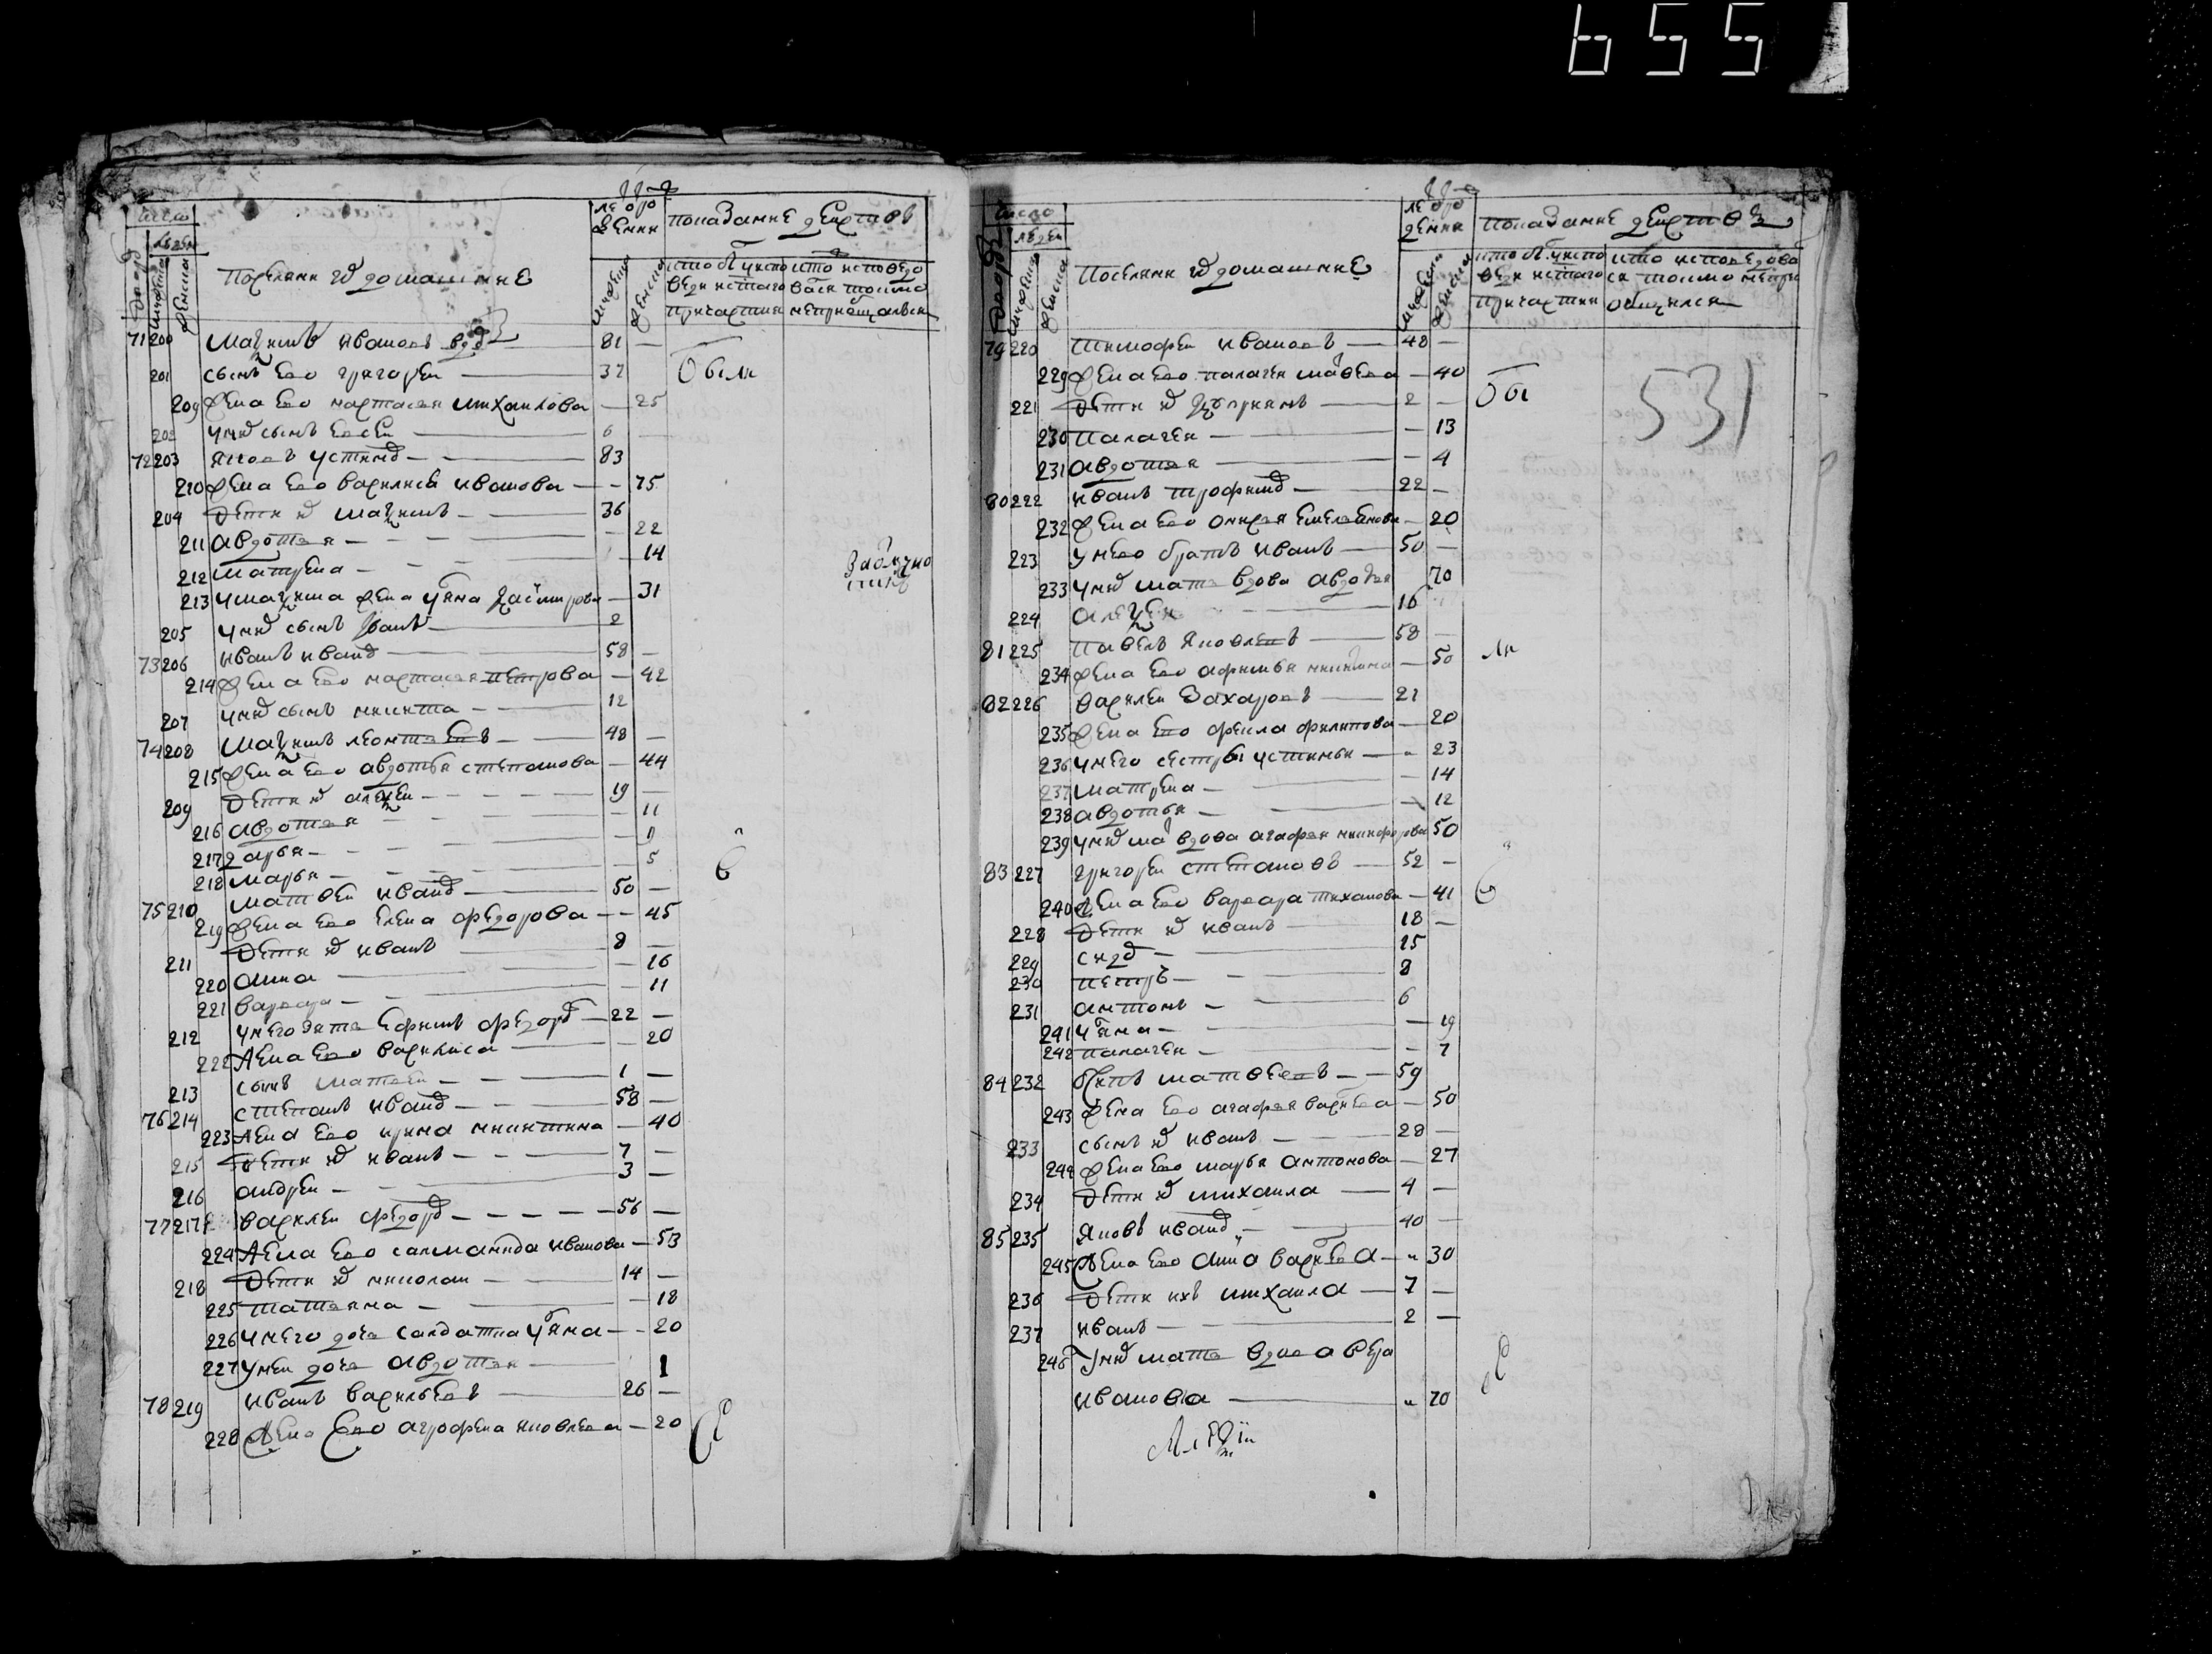 655
число
людей
лѣ ѿ ро
ждения
показание действъ
поселяня и домашние
кто был у испо
веди и стаго
причастия
кто исповедо
вался токмо
неприобщался
71 200 максимъ ивановъ вдов 81 —
201 сынъ ево григореи — 37
были
209 жена ево настасья михаилова — 25
202 у них сынъ евсеи — 6
72 203 яковъ устинов — 83
210 жена ево василиса иванова — 75
204 дети их максимъ — 36
211 авдотья — 22
212 матрена — 14
213 у максима жена ульяна — 31
205 у них сынъ иванъ — 2
73 206 иванъ иванов — 58 —
214 жена ево настасья петрова — 42
207 у них сынъ никита — 12
74 208 максимъ леонтьевъ — 48 —
215 жена ево авдотья степанова — 44
209 дети их алексеи — 19 —
216 авдотья — 11
217 дарья — 9
218 марья — 5
в
75 210 матвеи иванов — 50 —
219 жена ево елена федорова — 45
211 дети их иванъ 8 —
220 анна — 16
221 варвара — 11
212 у него зять ефимъ федоров — 22 —
222 жена ево василиса — 20
213 сынъ матвеи — 1 —
76 214 степанъ иванов — 58 —
223 жена ево ирина никитина — 40
215 дети их иванъ — 7 —
216 андреи — 3 —
77 217 василеи федоров — 56 —
224 жена ево саламанида иванова — 53
218 дети их николаи — 14 —
225 татьяна — 18
226 у него дочь салдатка ульяна — 20
227 у неи дочь авдотья — 1
78 219 иванъ васильевъ — 26 —
228 жена ево агрофена яковлева — 20
число
людей
лѣ ѿ ро
ждения
показание действъ
поселяня и домашние
кто был у испо
веди и стаго
причастия
кто исповедова
ся токмо непри
общился
531
79 220 тимофеи ивановъ — 48 —
229 жена ево палагея матвеева — 40
бы
221 дети их — 2 —
230 палагея — 13
231 авдотья — 4
80 222 иванъ трофимов — 22 —
232 жена ево емельянова — 20
223 у нево братъ иванъ — 50 —
233 у них мать вдова авдотья 70
224 алексеи — 16
81 225 павелъ яковлевъ — 58 —
ли
234 жена ево афимья никитина — 50
82 226 василеи захаровъ — 21
235 жена ево фекла филипова — 20
236 у него сестры устинья — 23
237 матрена — 14
238 авдотья — 12
239 у них мать вдова агафья никифорова 50
83 227 григореи степановъ — 52 —
240 жена ево варвара тиханова — 41
228 дети их иванъ 18 —
229 сидор — 15
230 петръ — 8
231 антонъ — 6
241 ульяна — 19
242 палагея — 7
84 232 осипъ матвеевъ — 59
243 жена ево агафья васильева — 50
233 сынъ их иванъ — 28 —
244 жена ево марья антонова — 27
234 дети их михаила — 4 —
85 235 яковъ иванов — 40 —
245 жена ево анна васильева — 30
236 дети ихъ михаила — 7 —
237 иванъ — 2 —
246 у них мать вдова вера
иванова — 70